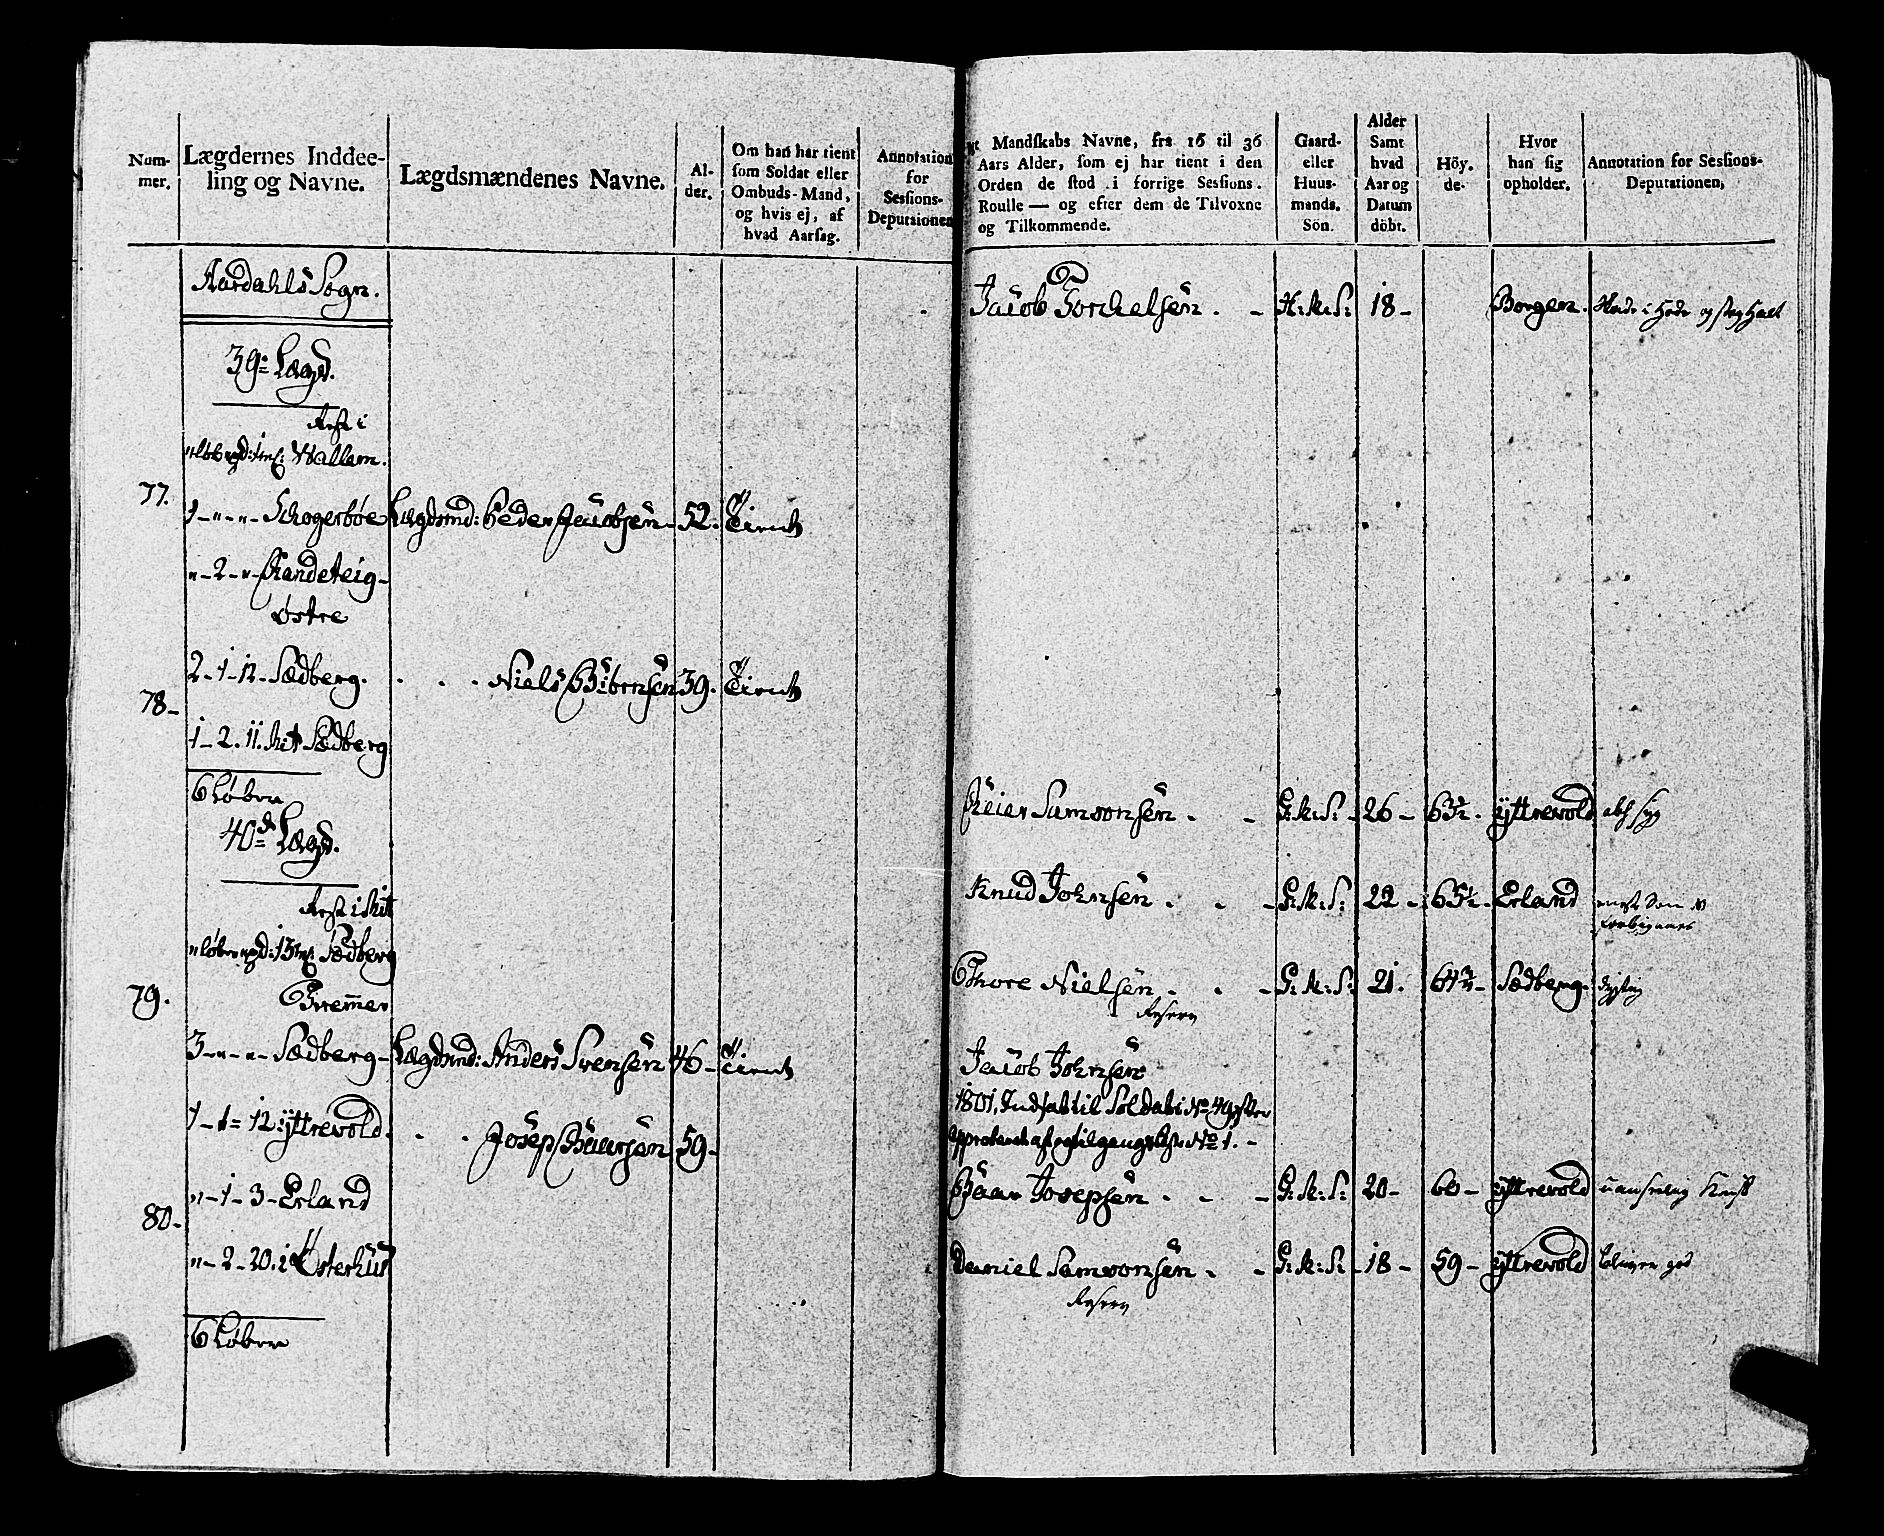 Num-
mer.
Lægdernes Inddee-
ling og Navne.
Lægdsmændenes Navne.
Al-
der.
Om han har tient
som Soldat eller
Ombuds-Mand,
og hvis ej, af
hvad Aarsag.
Annotation
for
Sessions-
Deputationen
Aardahls Sogn.
39: Lægd.
Rest i
Wallem.
77.
1 - " - " - Schogerbøe Lægdsmd: Peder Jacobsen - 52. Tient
" - 2 - " - Randeteig -
østre
2 - 1 - 12 - Sædberg. . . . Niels Biörnsen 39. Tient
78 -
1 - 2. 11. Sædberg
6 Løber
40de Lægd.
Rest i
Sædberg
79.
Bremmer
3 - " - " - Sædberg - Lægdsmd: Anders Svensen 46 - Tient
1 - 1 - 12 ÿttrevold. . . Josep Baarsen 59 -
" - 1 - 3 - Erland
80 -
" - 2 - 20. i Østerhus
6 Løber
Mandskabs Navne, fra 16 til 36
Aars Alder, som ej har tient i den
Orden de stod i forrige Sessions.
Roulle — og efter dem de Tilvoxne
og Tilkommende.
Gaard-
eller
Huus-
mands.
Sön.
Alder
Samt
hvad
Aar og
Datum
döbt.
Höy.
de.
Hvor
han sig
opholder.
Annotation for Sessions-
Deputationen,
Jacob Torchelsen . - H:M:S: 18 - Borgen.
Reier Samsonsen . - G:M:S: - 26 - 63½. ÿttrevold
Knud Johnsen . . - G:M:S: 22 - 65½ - Erland
Thore Nielsen . . - G:M:S: 21. 64¾ - Sædberg. dygtig
Reserv
Jacob Johnsen
1801, Indsat til Soldat i No 49 efter
No 1. -
Baar Josepsen . - - G:M:S: 20 - 60 - ÿttrevold
Daniel Samsonsen . - G:M:S: - 18 - 59 - ÿttrevold
Reserv